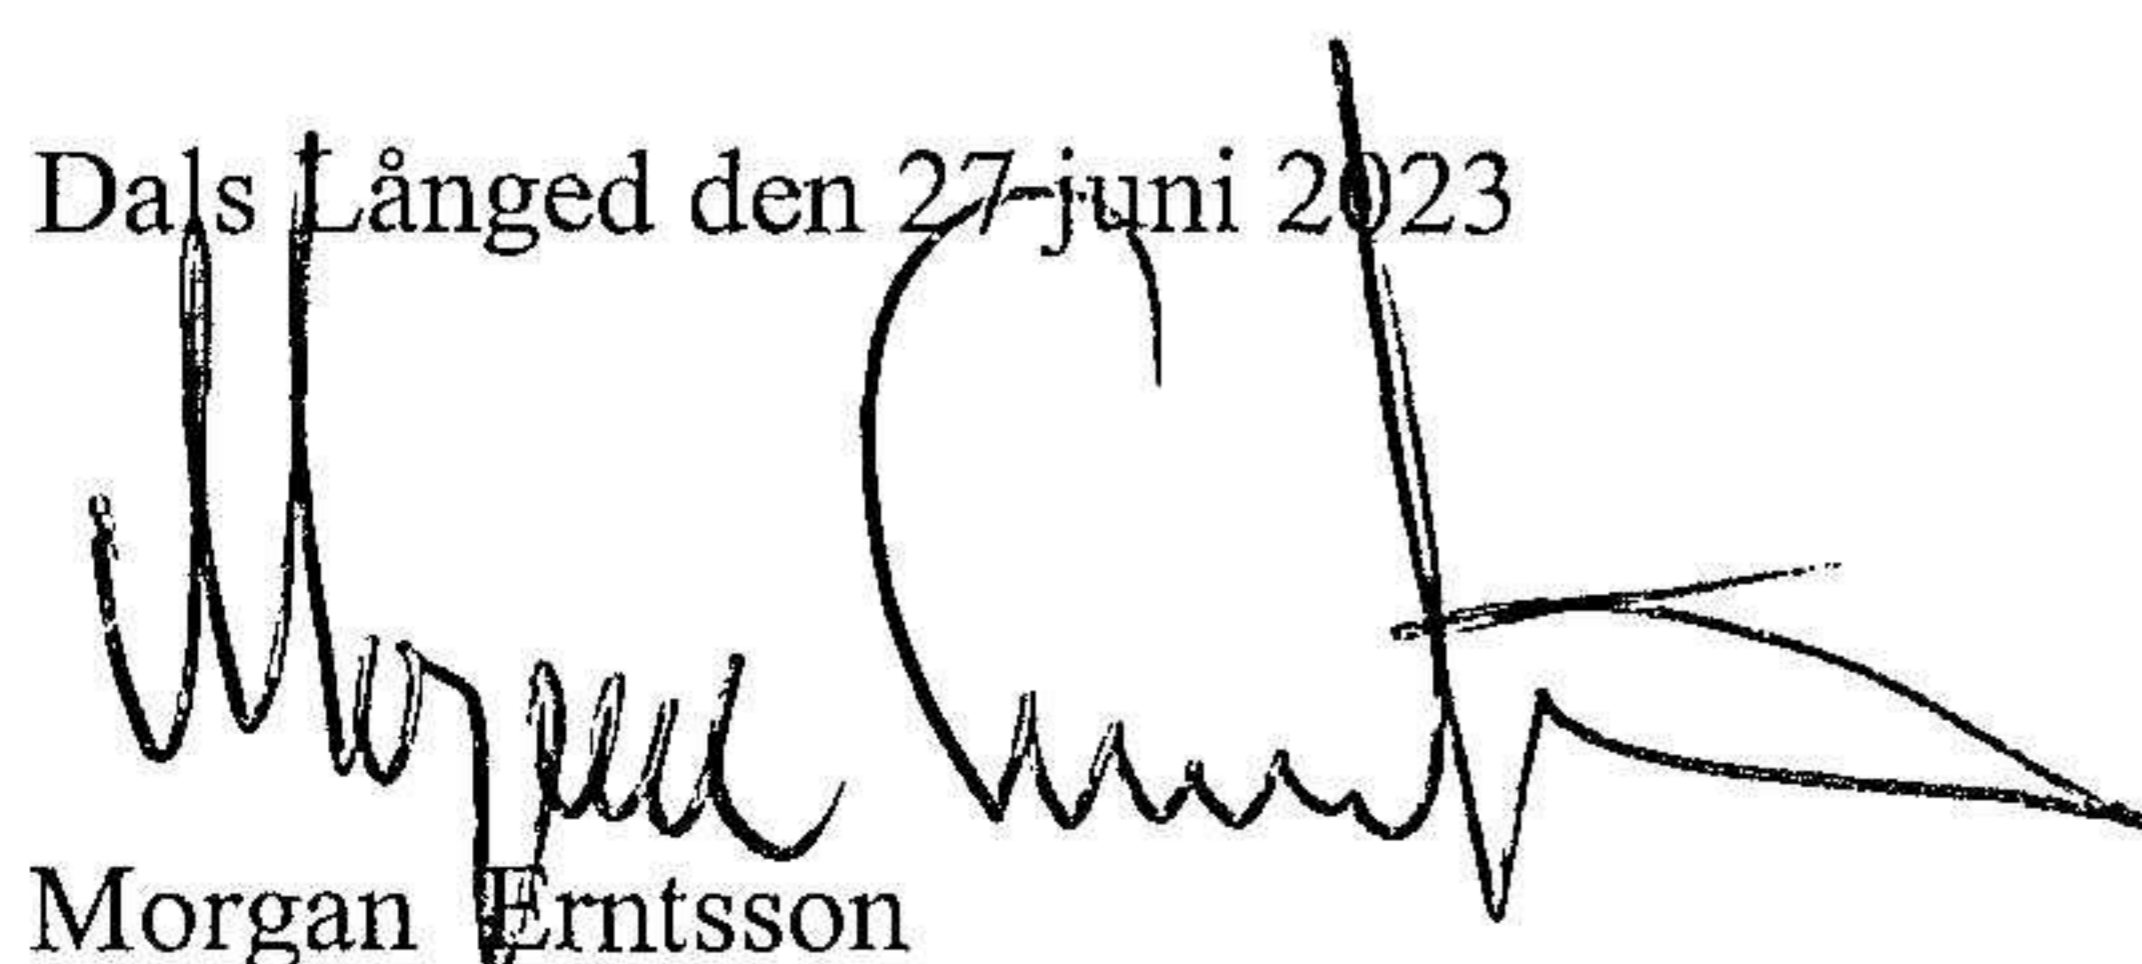 Dals Långed den 27 juni 2023
Morgan
Morgan Erntsson